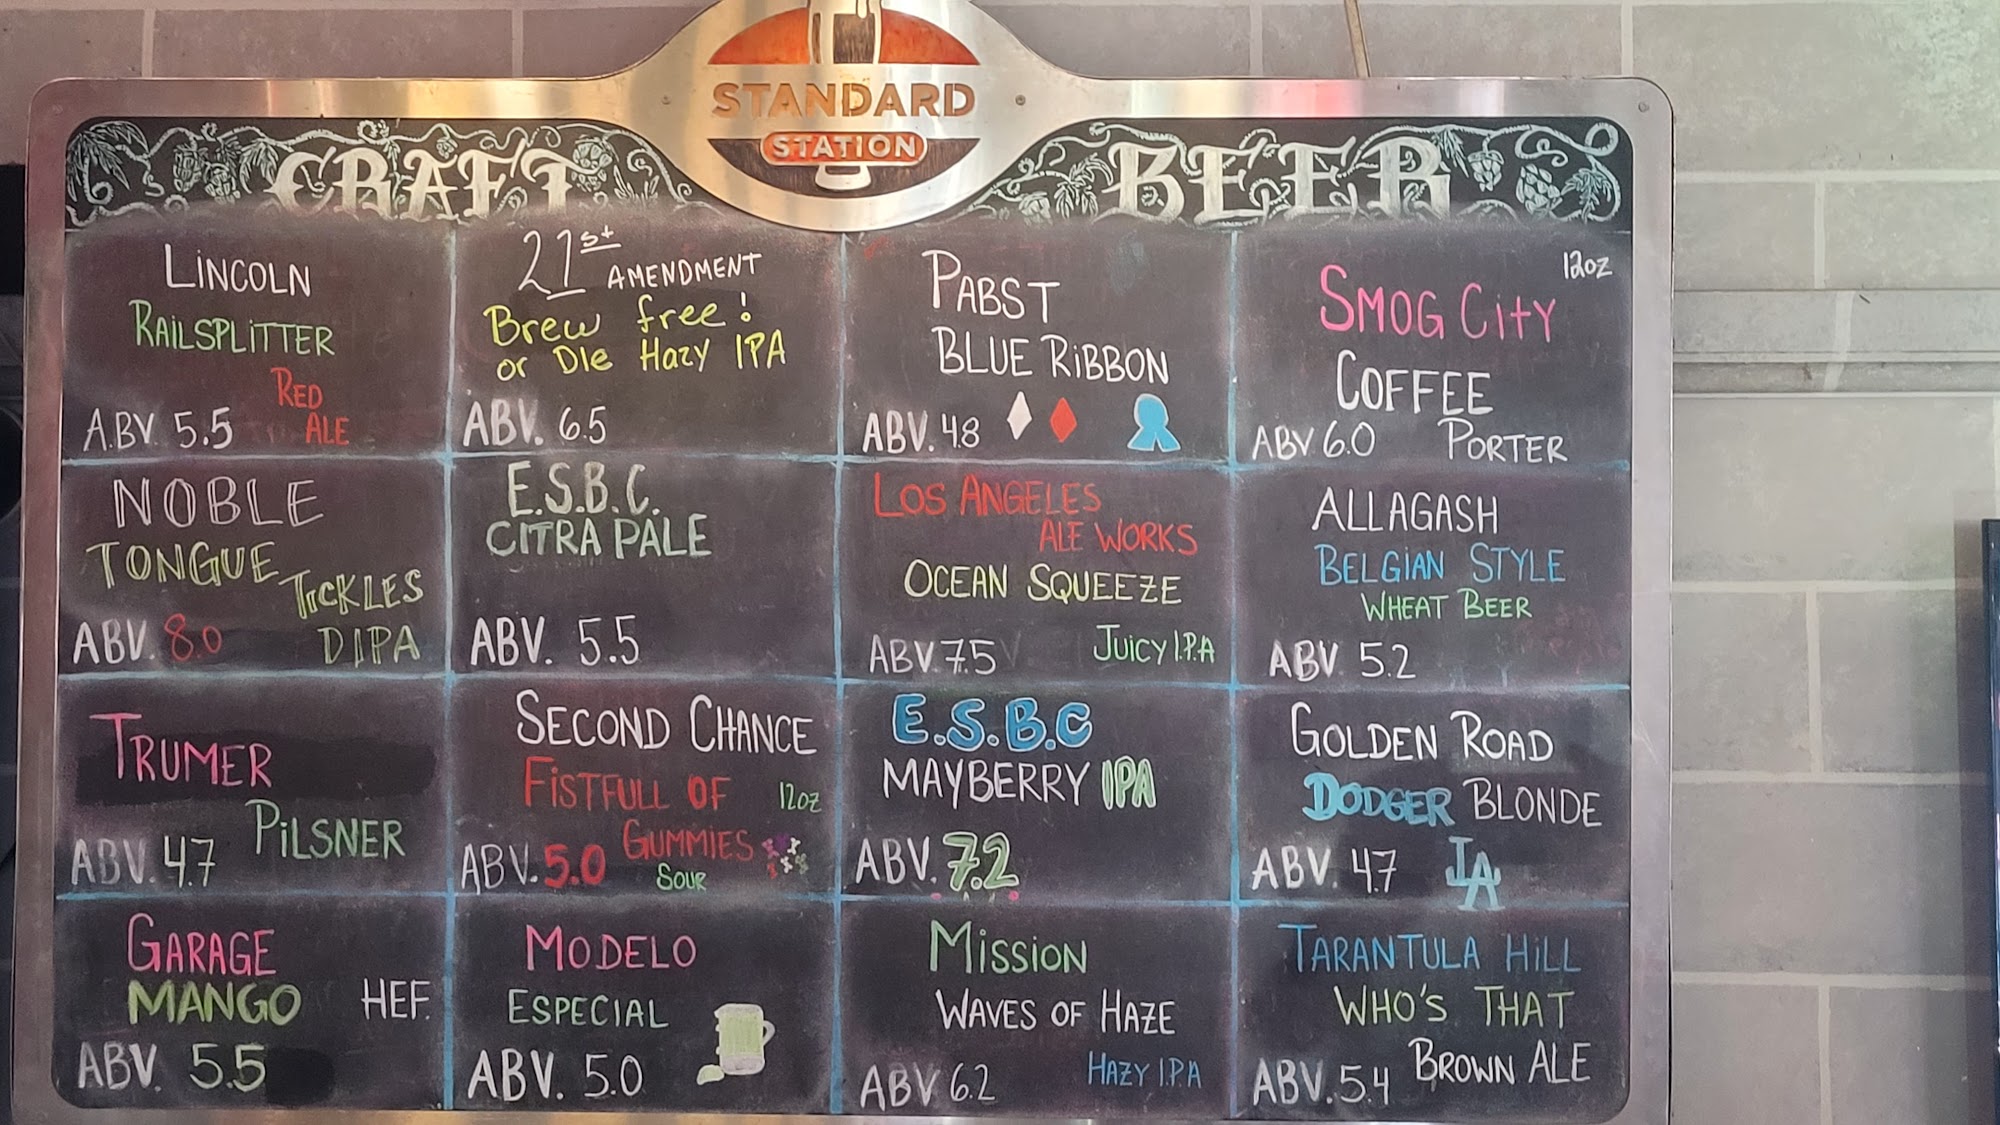 STANDARD
STATION
CRAFT BEER
LINCOLN
RAILSPLITTER
RED
ALE
A.BV. 5.5
21st
AMENDMENT
Brew free!
or Die Hazy IPA
ABV. 6.5
PABST
BLUE RIBBON
ABV. 4.8
12oz
SMOG CITY
COFFEE
PORTER
ABV 6.0
NOBLE
TONGUE
TICKLES
DIPA
ABV. 8.0
E.S.B.C.
CITRA PALE
ABV. 5.5
LOS ANGELES
ALE WORKS
OCEAN SQUEEZE
JUICY I.P.A
ABV 7.5
ALLAGASH
BELGIAN STYLE
WHEAT BEER
ABV 5.2
TRUMER
PILSNER
ABV. 4.7
SECOND CHANCE
FISTFULL OF
12oz
GUMMIES
SOUR
ABV. 5.0
E.S.B.C
MAYBERRY IPA
ABV. 7.2
GOLDEN ROAD
DODGER BLONDE
ABV. 4.7
LA
GARAGE
MANGO HEF.
ABV. 5.5
MODELO
ESPECIAL
ABV. 5.0
MISSION
WAVES OF HAZE
HAZY I.P.A
ABV 6.2
TARANTULA HILL
WHO'S THAT
BROWN ALE
ABV. 5.4